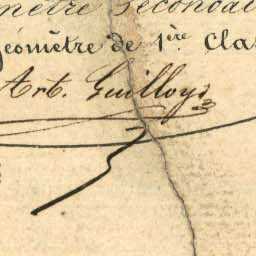 mètre Secondai
Géomètre de 1ère Clas
Art. Guilloys